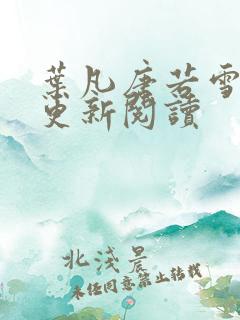 葉凡唐若雪
更新閱讀
北淺晨
未經同意禁止轉載